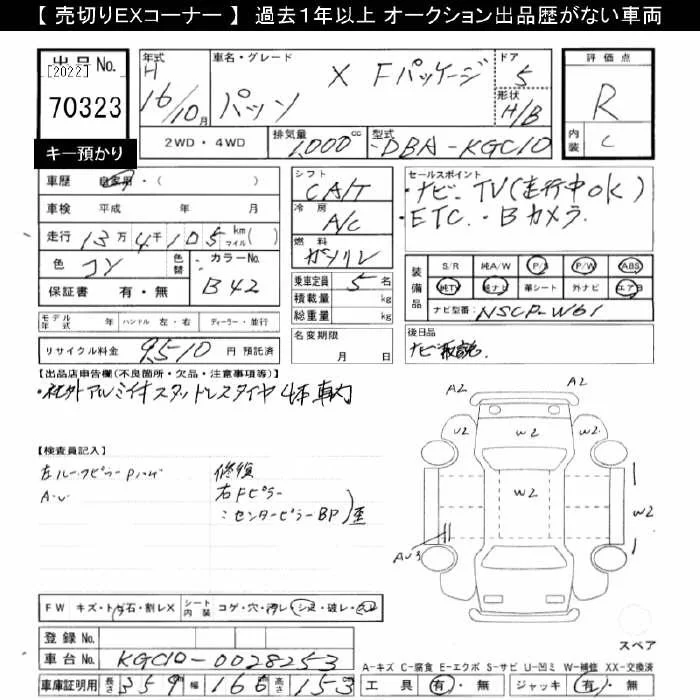 【 売切りEXコーナー 】 過去1年以上 オークション出品歴がない車両
出品 No.
[2022]
70323
キー預かり
年式 車名・グレード ドア
H 16/10月 パッソ X Fパッケージ 5
形状 H/B
2WD ・ 4WD 排気量 1,000 cc 型式 DBA-KGC10
評価点
R
内装 C
車歴 自家用・( )
車検 平成 年 月
走行 13万4千105 km マイル( )
色 コン 色替 カラーNo. B42
保証書 有・無
シフト CA/T
冷房 A/C
燃料 ガソリン
乗車定員 5 名
積載量 kg
総重量 kg
セールスポイント
・ナビ、TV(走行中OK)
・ETC.・Bカメラ
装備品 S/R 純A/W P/S P/W ABS
純TV 純ナビ 革シート 外ナビ エアB
ナビ型番: NSCP-W61
モデル年式 年 ハンドル 左・右 ディーラー・並行
名変期限 月 日
後日品
リサイクル料金 9,510 円 預託済
【出品店申告欄(不良箇所・欠品・注意事項等)】
・社外アルミ付スタッドレスタイヤ 4本車内
【検査員記入】
修復
右Fピラー
センターピラーBP
歪
A2 A2
U2 W2 U2
W2
W2
W2
スペア
FW キズ・トビ石・割レX シート内装 コゲ・穴・汚レ・シミ・破レ・
登録 No.
車台 No. KGC10-0028253
A-キズ C-腐食 E-エクボ S-サビ U-凹ミ W-補修 XX-交換済
車庫証明用 長さ 359 幅 166 高さ 153
工具 有・無 ジャッキ 有・無